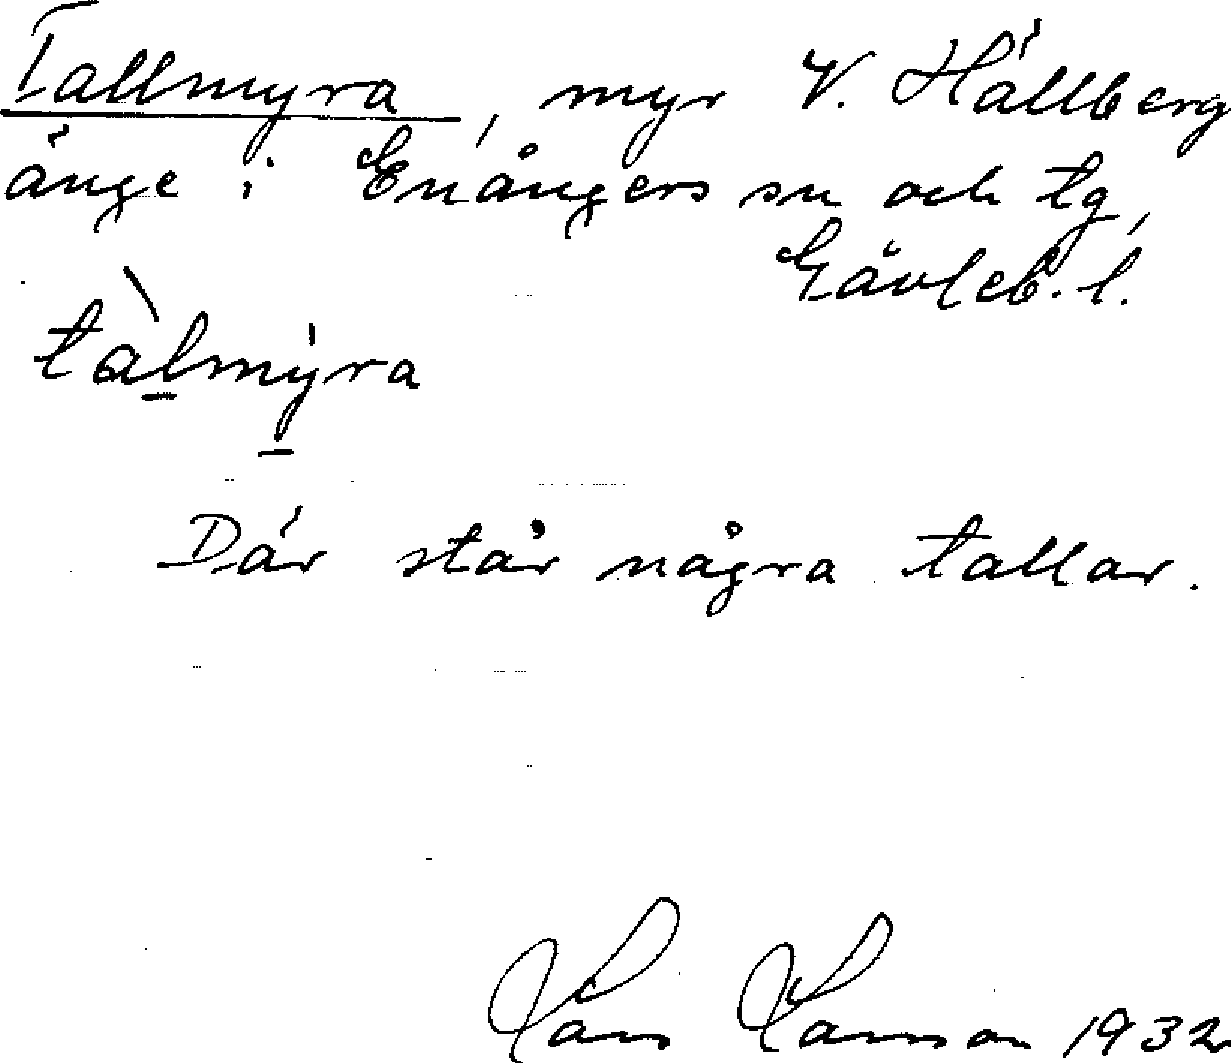 Tallmyra, myr V. Hällberg
änge i Enångers sn och tg,
Gävleb. l.
tàlmýra
Där står några tallar.
Lars Larsson 1932